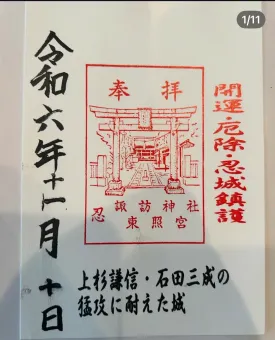 1/11
開運・厄除・忍城鎮護
奉拝
忍
諏訪神社
東照宮
令和六年十一月十日
上杉謙信・石田三成の
猛攻に耐えた城